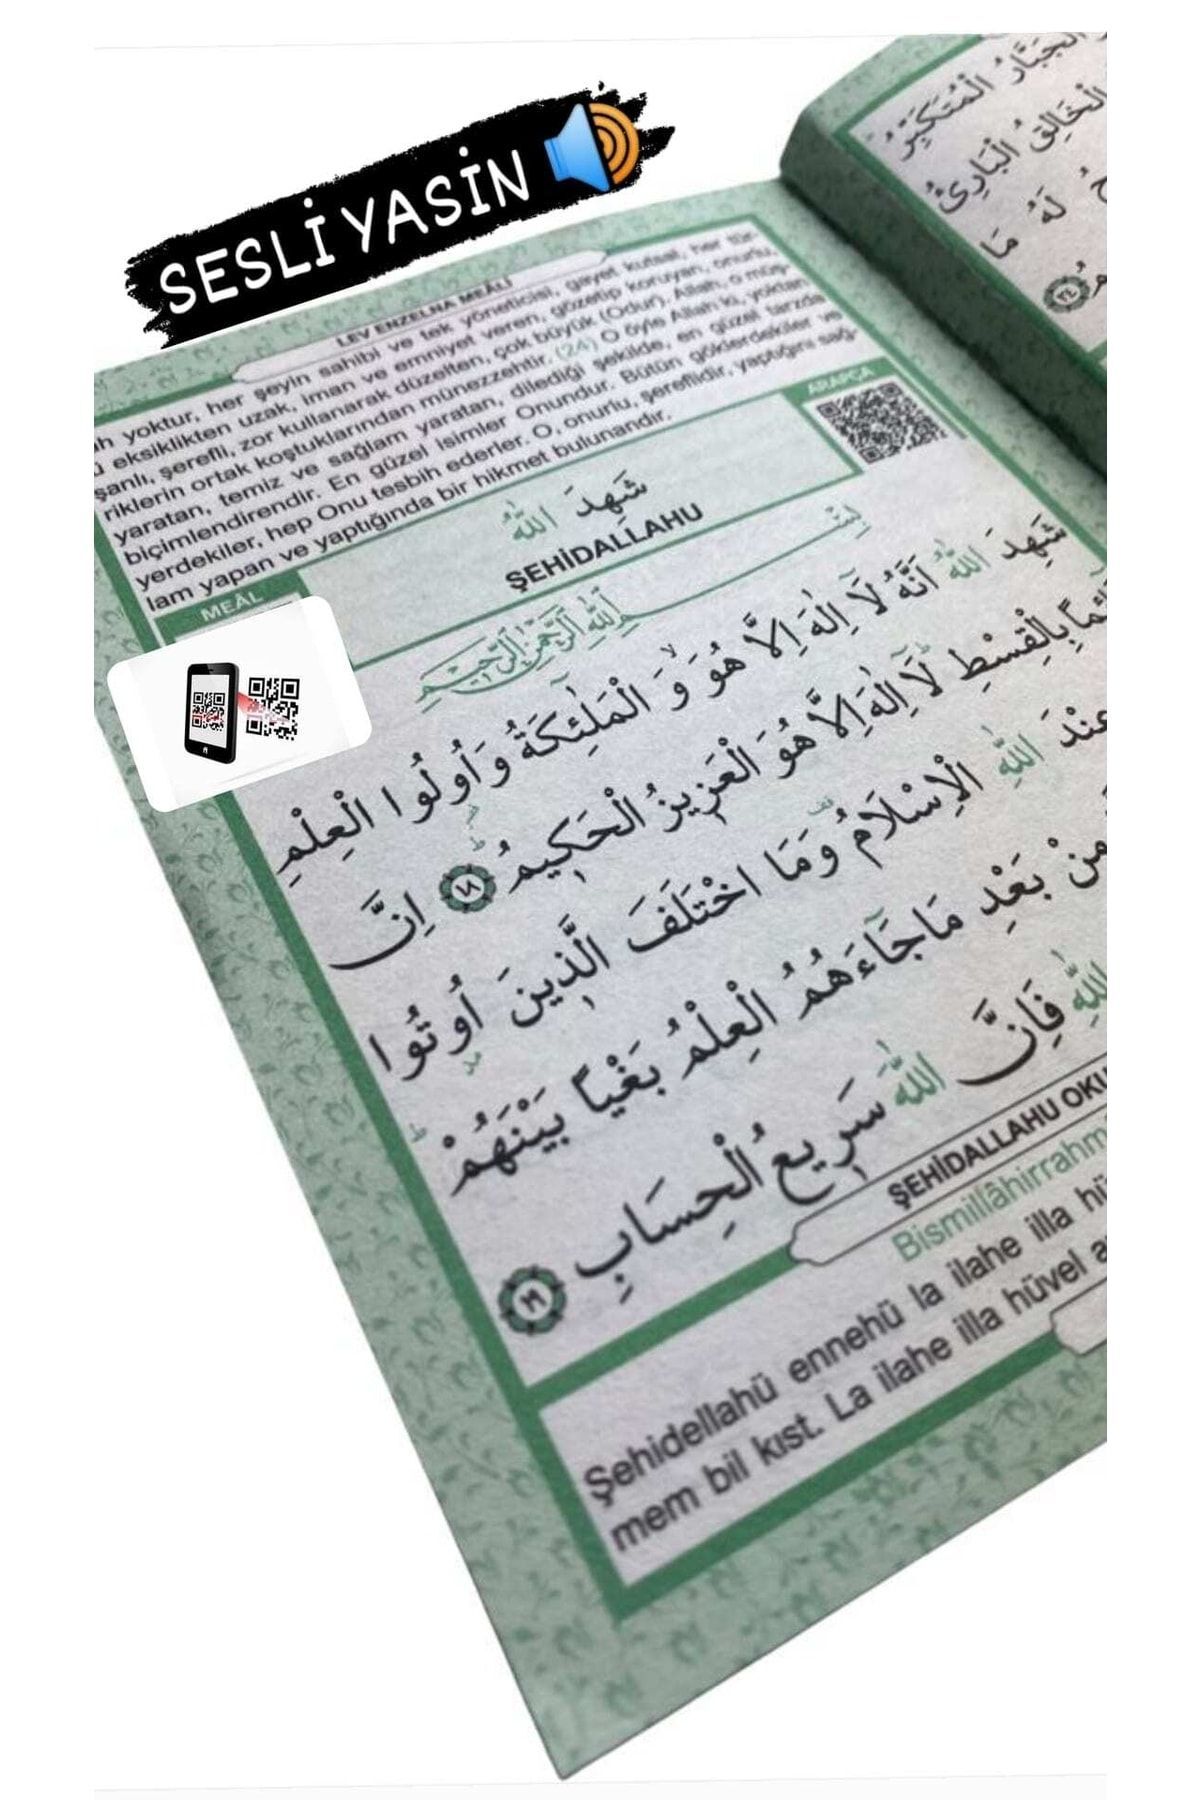 SESLİ YASİN
LEV ENZELNA MEÂLİ
yoktur, her şeyin sahibi ve tek yöneticisi, gayet kutsal, her tür-
eksiklikten uzak, iman ve emniyet veren, gözetip koruyan, onurlu,
şanlı, şerefli, zor kullanarak düzelten, çok büyük (Odur). Allah, o müş-
riklerin ortak koştuklarından münezzehtir. (24) O öyle Allah ki, yoktan
yaratan, temiz ve sağlam yaratan, dilediği şekilde, en güzel tarzda
biçimlendirendir. En güzel isimler Onundur. Bütün göklerdekiler ve
yerdekiler, hep Onu tesbih ederler. O, onurlu, şereflidir, yaptığını sağ-
lam yapan ve yaptığında bir hikmet bulunandır.
ARAPÇA
شَهِدَ اللّٰهُ
ŞEHİDALLAHU
MEÂL
بِسْمِ اللّٰهِ الرَّحْمٰنِ الرَّحِيمِ
شَهِدَ اللّٰهُ اَنَّهُ لَٓا اِلٰهَ اِلَّا هُوَۙ وَ الْمَلٰٓئِكَةُ وَ اُو۬لُوا الْعِلْمِ
بِالْقِسْطِۜ لَٓا اِلٰهَ اِلَّا هُوَ الْعَزِيزُ الْحَكِيمُ ١٨ اِنَّ
عِنْدَ اللّٰهِ الْاِسْلَامُ وَمَا اخْتَلَفَ الَّذِينَ اُو۫تُوا
مِنْ بَعْدِ مَا جَٓاءَهُمُ الْعِلْمُ بَغْياً بَيْنَهُمْۜ
اللّٰهِ فَاِنَّ اللّٰهَ سَرِيعُ الْحِسَابِ ١٩
ŞEHİDALLAHU
Bismillâhirrahm
Şehidellahü ennehü la ilahe illa
mem bil kıst. La ilahe illa hüvel
الْجَبَّارُ الْمُتَكَبِّرُ
الْخَالِقُ الْبَارِئُ
لَهُ مَا
٢٤